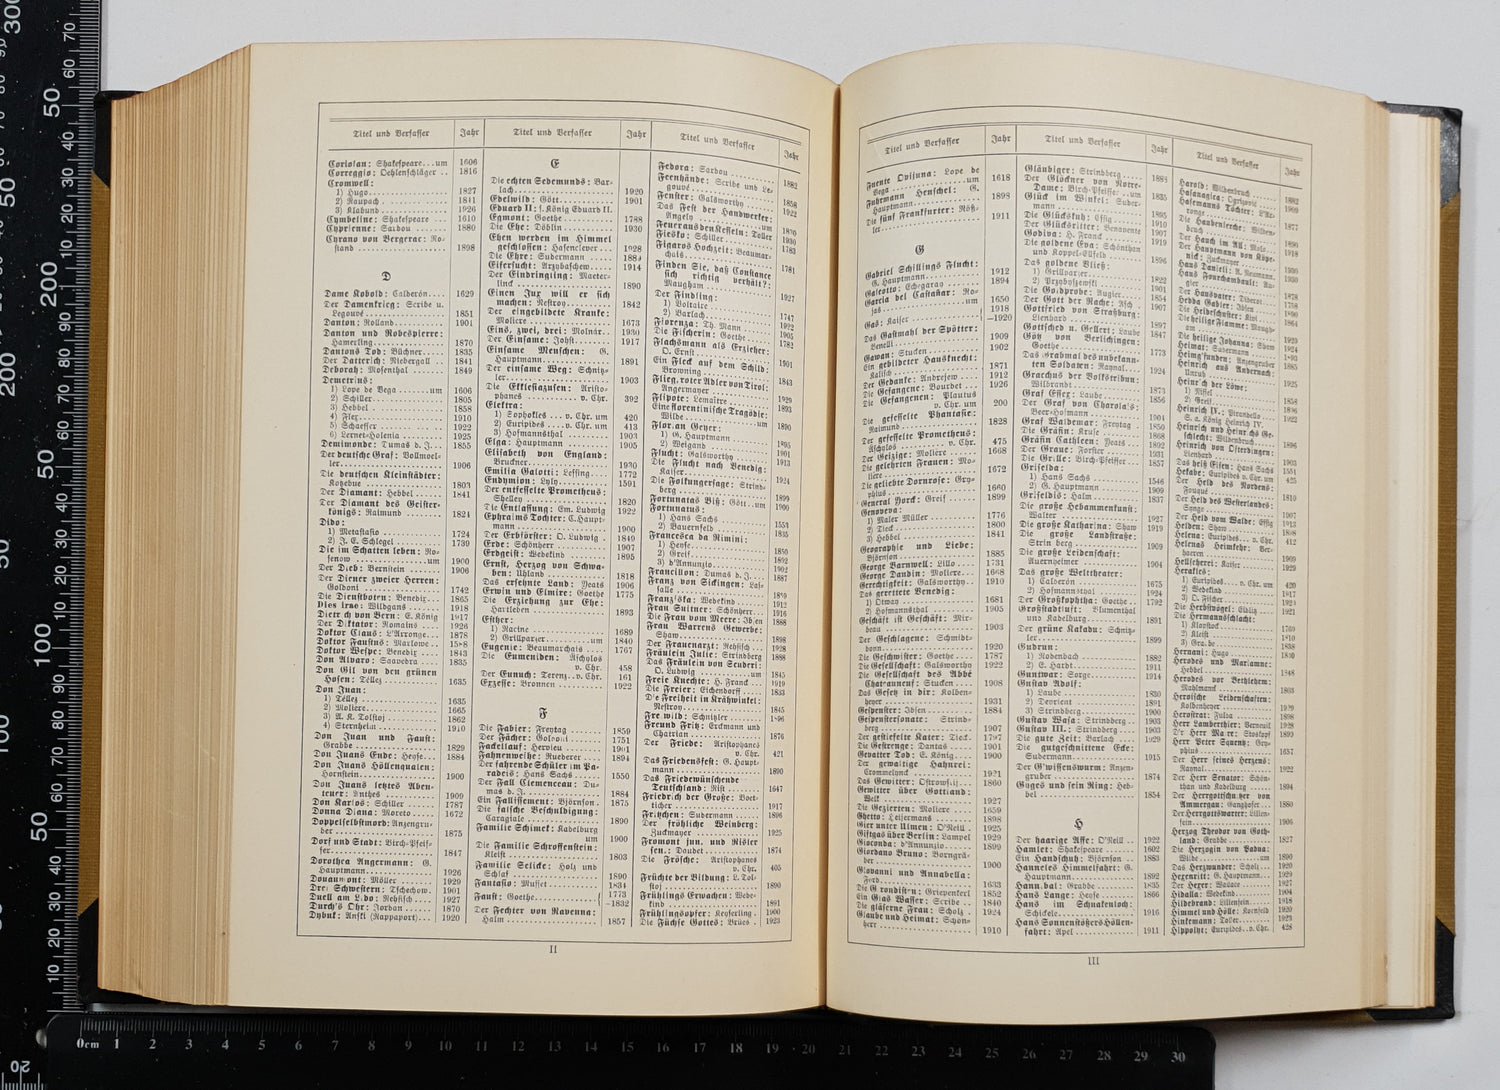 Titel und Verfasser Jahr
Coriolan: Shakespeare...um 1606
Correggio: Oehlenschläger .. 1816
Cromwell:
1) Hugo 1827
2) Raupach 1841
3) Klabund 1926
Cymbeline: Shakespeare 1610
Cyprienne: Sardou 1880
Cyrano von Bergerac: Ro-
stand 1898
D
Dame Kobold: Calderón 1629
Der Damenkrieg: Scribe u.
Legouvé 1851
Danton: Rolland 1901
Danton und Robespierre:
Hamerling 1870
Dantons Tod: Büchner 1835
Der Datterich: Niebergall 1841
Deborah: Mosenthal 1849
Demetrius:
1) Lope de Vega um 1606
2) Schiller 1805
3) Hebbel 1858
4) Flex 1910
5) Schaeffer 1922
6) Lernet-Holenia 1925
Demimonde: Dumas d. J. 1855
Der deutsche Graf: Vollmoel-
ler 1906
Die deutschen Kleinstädter:
Kotzebue 1803
Der Diamant: Hebbel 1841
Der Diamant des Geister-
königs: Raimund 1824
Dido:
1) Metastasio 1724
2) J. E. Schlegel 1739
Die im Schatten leben: Ro-
senow um 1900
Der Dieb: Bernstein 1906
Der Diener zweier Herren:
Goldoni 1742
Die Dienstboten: Benedix 1865
Dies irae: Wildgans 1918
Dietrich von Bern: E. König 1917
Der Diktator: Romains 1926
Doktor Claus: L'Arronge 1878
Doktor Faustus: Marlowe 1588
Doktor Wespe: Benedix 1843
Don Alvaro: Saavedra 1835
Don Gil von den grünen
Hosen: Téllez 1635
Don Juan:
1) Téllez 1635
2) Molière 1665
3) A. K. Tolstoj 1862
4) Sternheim 1910
Don Juan und Faust:
Grabbe 1829
Don Juans Ende: Heyse 1884
Don Juans Höllenqualen:
Hornstein 1900
Don Juans letztes Aben-
teuer: Anthes 1909
Don Karlos: Schiller 1787
Donna Diana: Moreto 1672
Doppelselbstmord: Anzengru-
ber 1875
Dorf und Stadt: Birch-Pfeif-
fer 1847
Dorothea Angermann: G.
Hauptmann 1926
Douaumont: Möller 1929
Drei Schwestern: Tschechow 1901
Duell am Lido: Rehfisch 1927
Durch's Ohr: Jordan 1870
Dybuk: Anski (Rappaport) 1920
Titel und Verfasser Jahr
E
Die echten Sedemunds: Bar-
lach 1920
Edelwild: Gött 1901
Eduard II: s. König Eduard II.
Egmont: Goethe 1788
Die Ehe: Döblin 1930
Ehen werden im Himmel
geschlossen: Hasenclever 1928
Die Ehre: Sudermann 1889
Eifersucht: Arzybaschem 1914
Der Eindringling: Maeter-
linck 1890
Einen Jux will er sich
machen: Nestroy 1842
Der eingebildete Kranke:
Molière 1673
Eins, zwei, drei: Molnár 1930
Der Einsame: Johst 1917
Einsame Menschen: G.
Hauptmann 1891
Der einsame Weg: Schnitz-
ler 1903
Die Ekklesiazusen: Aristo-
phanes v. Chr. 392
Elektra:
1) Sophokles v. Chr. um 420
2) Euripides v. Chr. um 413
3) Hofmannsthal 1903
Elga: Hauptmann 1905
Elisabeth von England:
Bruckner 1930
Emilia Galotti: Lessing 1772
Endymion: Lyly 1591
Der entfesselte Prometheus:
Shelley 1820
Die Entlassung: Em. Ludwig 1922
Ephraims Tochter: C. Haupt-
mann 1900
Der Erbförster: O. Ludwig 1849
Erde: Schönherr 1907
Erdgeist: Wedekind 1895
Ernst, Herzog von Schwa-
ben: Uhland 1818
Das ersehnte Land: Yeats 1906
Erwin und Elmire: Goethe 1775
Die Erziehung zur Ehe:
Hartleben 1893
Esther:
1) Racine 1689
2) Grillparzer um 1840
Eugenie: Beaumarchais 1767
Die Eumeniden: Äschylos
v. Chr. 458
Der Eunuch: Terenz v. Chr. 161
Exzesse: Bronnen 1922
F
Die Fabier: Freytag 1859
Der Fächer: Goldoni 1751
Fackellauf: Hervieu 1901
Fahnenweihe: Ruederer 1894
Der fahrende Schüler im Pa-
radeis: Hans Sachs 1550
Der Fall Clemenceau: Du-
mas d. J. 1884
Ein Fallissement: Björnson 1875
Die falsche Beschuldigung:
Caragiale 1890
Familie Schimek: Kadelburg
um 1900
Die Familie Schroffenstein:
Kleist 1803
Familie Selicke: Holz und
Schlaf 1890
Fantasio: Musset 1834
Faust: Goethe { 1773
–1832
Der Fechter von Ravenna:
Halm 1857
Titel und Verfasser Jahr
Fedora: Sardou 1882
Feenhände: Scribe und Le-
gouvé 1858
Fenster: Galsworthy 1922
Das Fest der Handwerker:
Angely 1830
Feuer aus den Kesseln: Toller 1930
Fiesko: Schiller 1783
Figaros Hochzeit: Beaumar-
chais 1781
Finden Sie, daß Constance
sich richtig verhält?:
Maugham 1927
Der Findling:
1) Voltaire 1747
2) Barlach 1922
Fiorenza: Th. Mann 1905
Die Fischerin: Goethe 1782
Flachsmann als Erzieher:
O. Ernst 1901
Ein Fleck auf dem Schild:
Browning 1843
Flieg, roter Adler von Tirol:
Angermayer 1929
Flipote: Lemaître 1893
Eine florentinische Tragödie:
Wilde um 1890
Florian Geyer:
1) G. Hauptmann 1895
2) Weigand 1901
Flucht: Galsworthy 1913
Die Flucht nach Venedig:
Kaiser 1924
Die Folkungersage: Strind-
berg 1899
Fortunatas Biß: Gött um 1900
Fortunatus:
1) Hans Sachs 1553
2) Bauernfeld 1835
Francesca da Rimini:
1) Heyse 1850
2) Greif 1892
3) d'Annunzio 1902
Francillon: Dumas d. J. 1887
Franz von Sickingen: Las-
salle 1859
Franziska: Wedekind 1912
Frau Suitner: Schönherr 1916
Die Frau vom Meere: Ibsen 1888
Frau Warrens Gewerbe:
Shaw 1898
Der Frauenarzt: Rehfisch 1928
Fräulein Julie: Strindberg 1888
Das Fräulein von Scuderi:
O. Ludwig um 1845
Freie Knechte: H. Franck 1919
Die Freier: Eichendorff 1833
Die Freiheit in Krähwinkel:
Nestroy 1845
Freiwild: Schnitzler 1896
Freund Fritz: Erckmann und
Chatrian 1876
Der Friede: Aristophanes
v. Chr. 421
Das Friedensfest: G. Haupt-
mann 1890
Das Friedewünschende
Teutschland: Rist 1647
Friedrich der Große: Boet-
ticher 1917
Fritzchen: Sudermann 1896
Der fröhliche Weinberg:
Zuckmayer 1925
Fromont jun. und Risler
sen.: Daudet 1874
Die Frösche: Aristophanes
v. Chr. 405
Früchte der Bildung: L. Tol-
stoj 1890
Frühlings Erwachen: Wede-
kind 1891
Frühlingsopfer: Keyserling 1900
Die Füchse Gottes: Brües 1923
II
Titel und Verfasser Jahr
Fuente Ovijuna: Lope de
Vega um 1618
Fuhrmann Henschel: G.
Hauptmann 1898
Die fünf Frankfurter: Röß-
ler 1911
G
Gabriel Schillings Flucht:
G. Hauptmann 1912
Galeotto: Echegaray 1894
Garcia del Castañar: Ro-
jas um 1650
Gas: Kaiser { 1918
–1920
Das Gastmahl der Spötter:
Benelli 1909
Gawan: Stucken 1902
Ein gebildeter Hausknecht:
Kalisch 1871
Der Gedanke: Andrejew 1912
Die Gefangene: Bourdet 1926
Die Gefangenen: Plautus
v. Chr. um 200
Die gefesselte Phantasie:
Raimund 1828
Der gefesselte Prometheus:
Äschylos v. Chr. 475
Der Geizige: Molière 1668
Die gelehrten Frauen: Mo-
lière 1672
Die geliebte Dornrose: Gry-
phius 1660
General Yorck: Greif 1899
Genoveva:
1) Maler Müller 1776
2) Tieck 1800
3) Hebbel 1841
Geographie und Liebe:
Björnson 1885
George Barnwell: Lillo 1731
George Dandin: Molière 1668
Gerechtigkeit: Galsworthy 1910
Das gerettete Venedig:
1) Otway 1681
2) Hofmannsthal 1905
Geschäft ist Geschäft: Mir-
beau 1903
Der Geschlagene: Schmidt-
bonn 1920
Die Geschwister: Goethe 1787
Die Gesellschaft: Galsworthy 1922
Die Gesellschaft des Abbé
Chateauneuf: Stucken 1908
Das Gesetz in dir: Kolben-
heyer 1931
Gespenster: Ibsen 1884
Gespenstersonate: Strind-
berg 1907
Der gestiefelte Kater: Tieck 1797
Die Gestrenge: Dantas 1901
Gevatter Tod: E. König 1900
Der gewaltige Hahnrei:
Crommelynck 1921
Das Gewitter: Ostrowskij 1860
Gewitter über Gottland:
Welk 1927
Die Gezierten: Molière 1659
Ghetto: Heijermans 1898
Gier unter Ulmen: O'Neill 1925
Giftgas über Berlin: Lampel 1929
Gioconda: d'Annunzio 1899
Giordano Bruno: Borngrä-
ber 1900
Giovanni und Annabella:
Ford 1633
Die Girondisten: Griepenkerl 1852
Ein Glas Wasser: Scribe 1840
Die gläserne Frau: Scholz 1924
Glaube und Heimat: Schön-
herr 1910
Titel und Verfasser Jahr
Gläubiger: Strindberg 1888
Der Glöckner von Notre-
Dame: Birch-Pfeiffer um
Glück im Winkel: Suder-
mann 1895
Die Glückskuh: Essig 1910
Der Glücksritter: Benavente 1907
Godiva: H. Franck 1919
Die goldene Eva: Schönthan
und Koppel-Ellfeld 1896
Das goldene Vließ:
1) Grillparzer 1822
2) Przybyszewski 1901
Die Goldprobe: Augier 1854
Der Gott der Rache: Asch 1907
Gottfried von Straßburg:
Lienhard 1897
Gottsched u. Gellert: Laube 1847
Götz von Berlichingen:
Goethe 1773
Das Grabmal des unbekann-
ten Soldaten: Raynal 1924
Gracchus der Volkstribun:
Wilbrandt 1873
Graf Essex: Laube 1856
Der Graf von Charolais:
Beer-Hofmann 1904
Graf Waldemar: Freytag 1850
Die Gräfin: Kruse 1868
Gräfin Cathleen: Yeats 1892
Der Graue: Forster 1931
Die Grille: Birch-Pfeiffer 1857
Griselda:
1) Hans Sachs 1546
2) G. Hauptmann 1909
Griseldis: Halm 1837
Die große Hebammenkunst:
Walter 1927
Die große Katharina: Shaw 1919
Die große Landstraße:
Strindberg 1909
Die große Leidenschaft:
Auernheimer 1904
Das große Welttheater:
1) Calderón 1675
2) Hofmannsthal 1924
Der Großkophtha: Goethe 1792
Großstadtluft: Blumenthal
und Kadelburg 1891
Der grüne Kakadu: Schnitz-
ler 1899
Gudrun:
1) Rodenbach 1882
2) E. Hardt 1911
Guntwar: Sorge 1914
Gustav Adolf:
1) Laube 1830
2) Devrient 1891
3) Strindberg 1900
Gustav Wasa: Strindberg 1903
Gustav III.: Strindberg 1903
Die gute Zeit: Barlach 1929
Die gutgeschnittene Ecke:
Sudermann 1915
Der G'wissenswurm: Anzen-
gruber 1874
Gyges und sein Ring: Heb-
bel 1854
H
Der haarige Affe: O'Neill 1922
Hamlet: Shakespeare 1602
Ein Handschuh: Björnson 1883
Hanneles Himmelfahrt: G.
Hauptmann 1892
Hannibal: Grabbe 1835
Hans Lange: Heyse 1866
Hans im Schnakenloch:
Schickele 1916
Hans Sonnenstößers Höllen-
fahrt: Apel 1911
Titel und Verfasser Jahr
Harold: Wildenbruch 1882
Hasanaginica: Ogrizovic 1909
Hasemanns Töchter: L'Ar-
ronge 1877
Die Haubenlerche: Wilden-
bruch 1890
Der Hauch im All: Molo 1918
Der Hauptmann von Köpe-
nick: Zuckmayer 1930
Hans Danieli: A. Neumann 1930
Haus Fourchambault: Au-
gier 1878
Der Hausvater: Diderot 1758
Hedda Gabler: Ibsen 1890
Die Heideschuster: Kivi 1864
Die heilige Flamme: Maugh-
am
Die heilige Johanna: Shaw 1924
Heimat: Sudermann 1893
Heimg'funden: Anzengruber 1885
Heinrich aus Andernach:
Unruh 1925
Heinrich der Löwe:
1) Nissel 1858
2) Greif
Heinrich IV.: Pirandello 1922
S. a. König Heinrich IV.
Heinrich und Heinrichs Ge-
schlecht: Wildenbruch 1896
Heinrich von Ofterdingen:
Lienhard 1903
Das heiß Eisen: Hans Sachs 1551
Hekabe: Euripides v. Chr. um 425
Der Held des Nordens:
Fouqué 1810
Der Held des Westerlandes:
Synge 1907
Der Held vom Walde: Essig 1913
Helden: Shaw
Helena: Euripides v. Chr. 412
Helenas Heimkehr: Ver-
haeren 1909
Hellseherei: Kaiser 1929
Herakles:
1) Euripides v. Chr. um 420
2) Wedekind 1917
3) O. Fischer
Die Herbstvögel: Eidlitz 1921
Die Hermannsschlacht:
1) Klopstock 1769
2) Kleist 1810
3) Grabbe 1838
Hernani: Hugo 1830
Herodes und Mariamne:
Hebbel 1848
Herodes vor Bethlehem:
Mahlmann 1803
Heroische Leidenschaften:
Kolbenheyer 1929
Herostrat: Fulda 1898
Herr Lamberthier: Verneuil 1928
Der Herr Marr: Stoskopf 1899
Herr Peter Squentz: Gry-
phius 1657
Der Herr seines Herzens:
Raynal 1922
Der Herr Senator: Schön-
than und Kadelburg 1894
Der Herrgottschnitzer von
Ammergau: Ganghofer 1880
Der Herrgottswarter: Lilien-
fein 1906
Herzog Theodor von Goth-
land: Grabbe 1827
Die Herzogin von Padua:
Wilde um 1890
Das Herzwunder: Scholz 1920
Hexenritt: G. Hauptmann 1929
Der Hexer: Wallace 1927
Hidalla: Wedekind 1904
Hildebrand: Lilienfein 1918
Himmel und Hölle: Kornfeld 1920
Hinkemann: Toller 1923
Hippolyt: Euripides v. Chr. 428
III
0cm 1 2 3 4 5 6 7 8 9 10 11 12 13 14 15 16 17 18 19 20 21 22 23 24 25 26 27 28 29 30